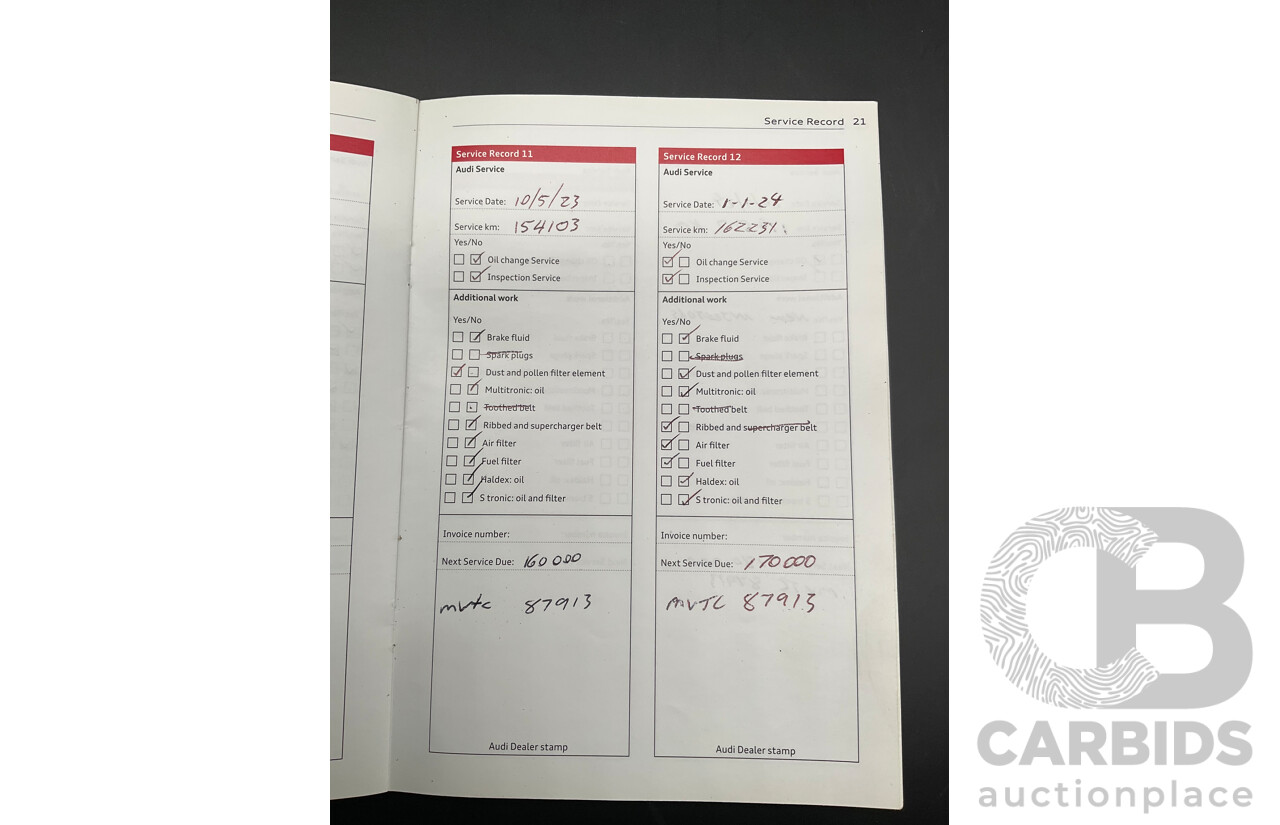 Service Record 21
Service Record 11
Audi Service
Service Date: 10/5/23
Service km: 154103
Yes/No
Oil change Service
Inspection Service
Additional work
Yes/No
Brake fluid
Spark plugs
Dust and pollen filter element
Multitronic: oil
Toothed belt
Ribbed and supercharger belt
Air filter
Fuel filter
Haldex: oil
S tronic: oil and filter
Invoice number:
Next Service Due: 160 000
mvtc 87913
Audi Dealer stamp
Service Record 12
Audi Service
Service Date: 1-1-24
Service km: 162231
Yes/No
Oil change Service
Inspection Service
Additional work
Yes/No
Brake fluid
Spark plugs
Dust and pollen filter element
Multitronic: oil
Toothed belt
Ribbed and supercharger belt
Air filter
Fuel filter
Haldex: oil
S tronic: oil and filter
Invoice number:
Next Service Due: 170000
MVTC 87913
Audi Dealer stamp
CB
CARBIDS
auctionplace